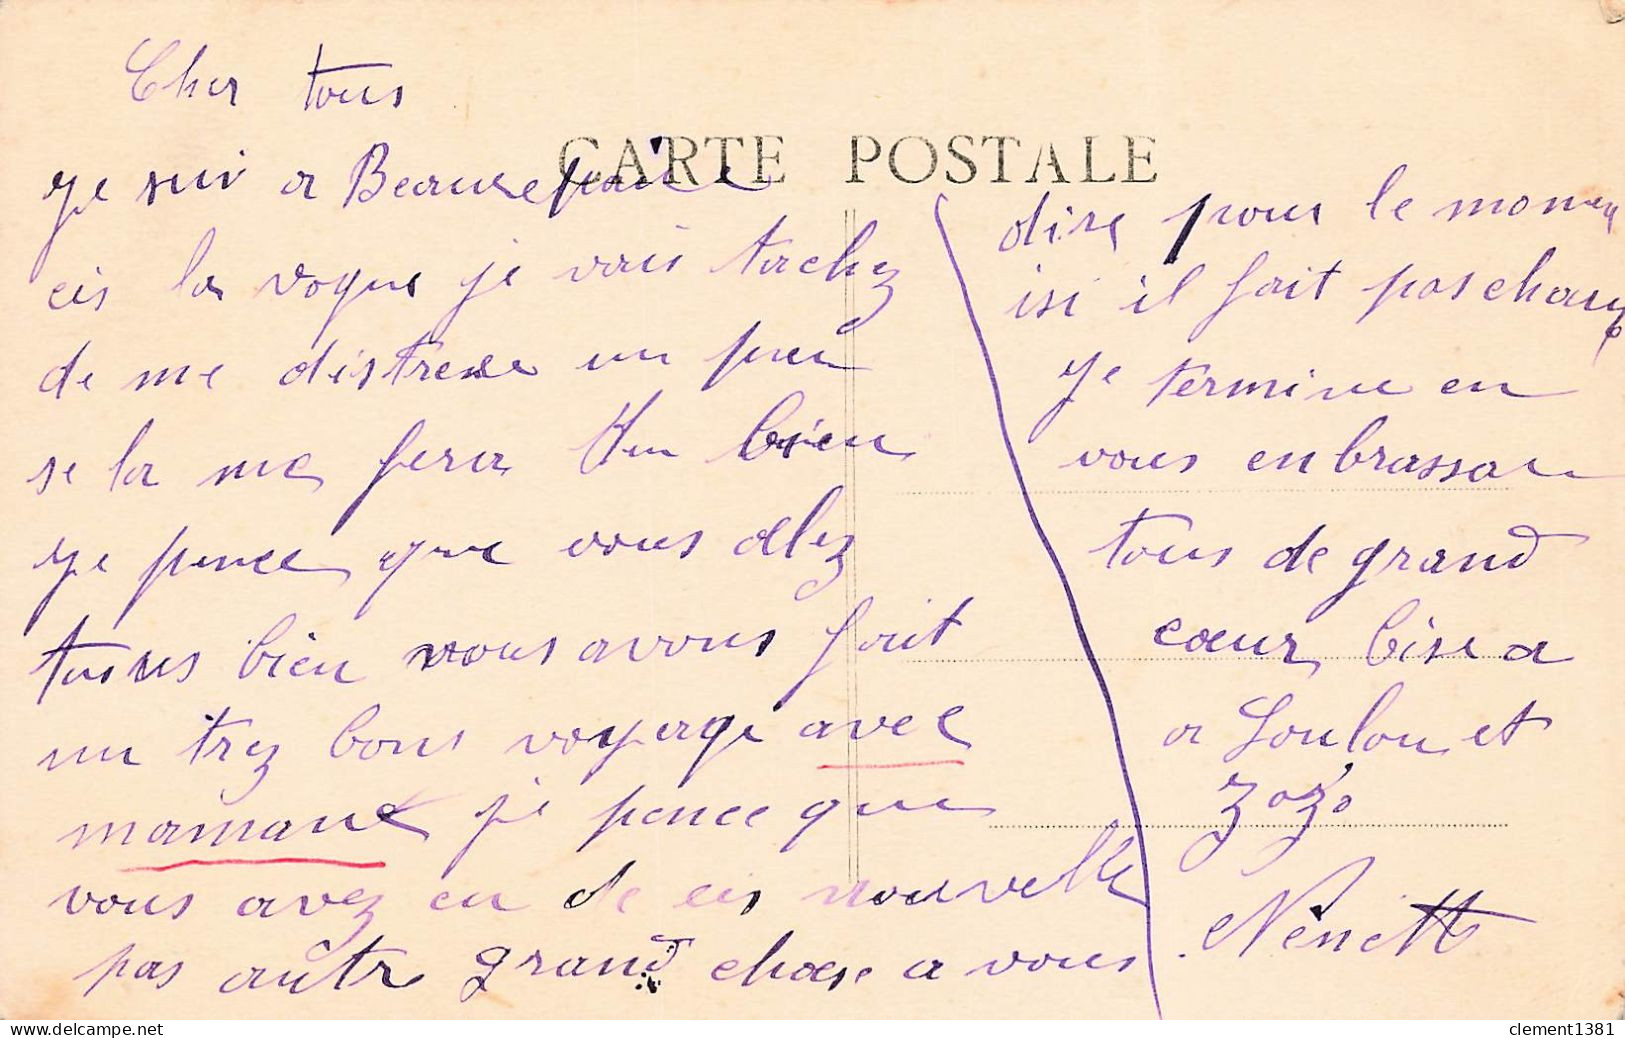 CARTE POSTALE
Cher tous
Je sui a Beaurepaire
cis la vogue je vais tachez
de me distrere un peu
se la me fera un bien
Je pence que vous alez
tous bien vous avous fait
un trez bons voyage avec
maman je pence que
vous avez eu de cis nouvelle
pas autr grand chose a vous
dire pour le momen
isi il fait pas chau
Je termine en
vous enbrassan
tous de grand
cœur bise a
a Loulou et
zozo
Nénette
delcampe.net
clement1381